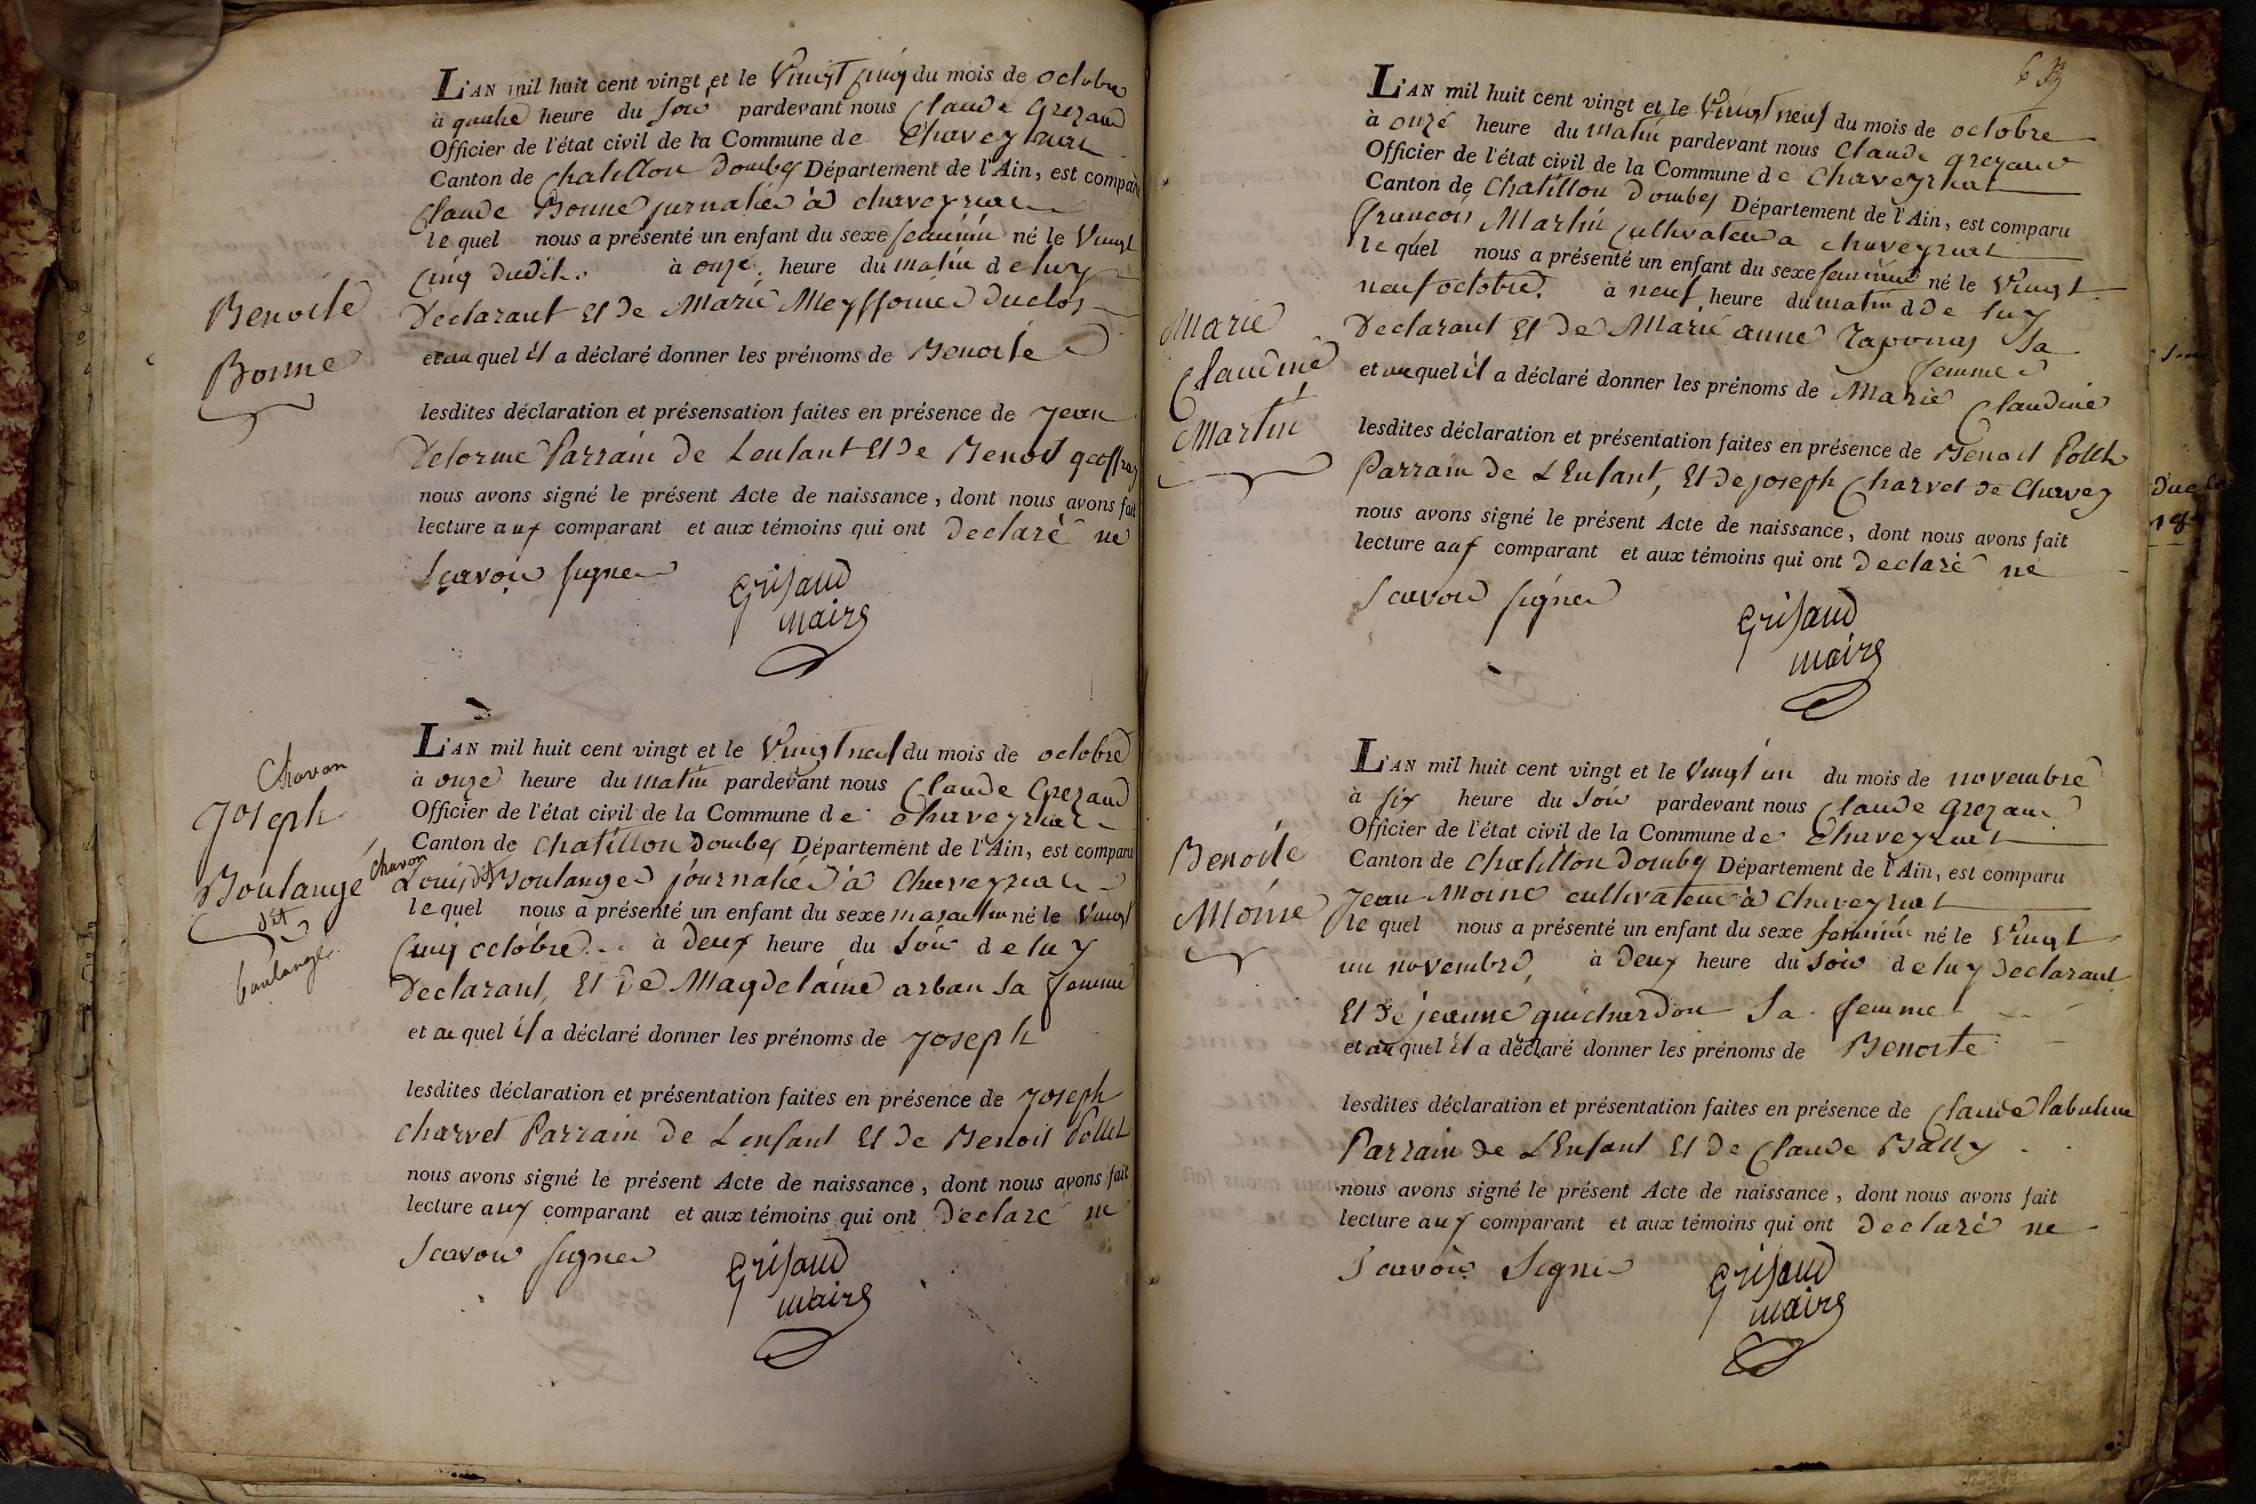 L'AN mil huit cent vingt et le Vingt cinq du mois de octobre
à quatre heure du soir pardevant nous Claude Grezaud
Officier de l'état civil de la Commune de Chaveyriat
Canton de Chatillon Dombes Département de l'Ain, est comparu
Claude Bonne journalier à chaveyriat
le quel nous a présenté un enfant du sexe feminin né le Vingt
cinq dudit. à onze heure du matin de luy
Declarant Et de Marie Meyssonier Duclos
et au quel il a déclaré donner les prénoms de Benoite
Benoite
Bonne
lesdites déclaration et présensation faites en présence de Jean
Delorme Parrain de Lenfant Et De Benoit geoffray
nous avons signé le présent Acte de naissance, dont nous avons fait
lecture aux comparant et aux témoins qui ont Declaré ne
Scavoir signer
Grisaud
maire
L'AN mil huit cent vingt et le Vingt neuf du mois de octobre
à onze heure du matin pardevant nous Claude Grezaud
Officier de l'état civil de la Commune de chaveyriat
Canton de Chatillon Dombes Département de l'Ain, est comparu
chavan
Louis dit Boulanger journalier à Chaveyriat
le quel nous a présenté un enfant du sexe masculin né le Vingt
cinq octobre à deux heure du soir de luy
Declarant, Et De Magdelaine arban sa femme
et au quel il a déclaré donner les prénoms de Joseph
Chavan
Joseph
Boulangé
dit
boulanger
lesdites déclaration et présentation faites en présence de Joseph
charvet Parrain de Lenfant Et De Benoit Pollet
nous avons signé le présent Acte de naissance, dont nous avons fait
lecture aux comparant et aux témoins qui ont Declaré ne
Scavoir signer
Grisaud
maire
63
L'AN mil huit cent vingt et le Vingt neuf du mois de octobre
à onze heure du matin pardevant nous Claude grezaud
Officier de l'état civil de la Commune de Chaveyriat
Canton de Chatillon Dombes Département de l'Ain, est comparu
françois Martin cultivateur a chaveyriat
le quel nous a présenté un enfant du sexe feminin né le Vingt
neuf octobre. à neuf heure du matin de luy
Declarant Et de Marie anne Taponas Sa
femme
et au quel il a déclaré donner les prénoms de Marie Claudine
Marie
Claudine
Martin
lesdites déclaration et présentation faites en présence de Benoit Pollet
Parrain de L'Enfant, Et de joseph Charvet de Chavey
nous avons signé le présent Acte de naissance, dont nous avons fait
lecture aux comparant et aux témoins qui ont Declaré ne
Scavoir signer
Grisaud
maire
L'AN mil huit cent vingt et le Vingt un du mois de novembre
à six heure du soir pardevant nous Claude grezaud
Officier de l'état civil de la Commune de Chaveyriat
Canton de chatillon domby Département de l'Ain, est comparu
Jean Moine cultivateur à Chaveyriat
le quel nous a présenté un enfant du sexe feminin né le Vingt
un novembre, à deux heure du soir de luy Declarant
Et De jeanne guichardon Sa femme
et au quel il a déclaré donner les prénoms de Benoite
Benoite
Moine
lesdites déclaration et présentation faites en présence de Claude labalme
Parrain de L'Enfant Et De Claude Bally
nous avons signé le présent Acte de naissance, dont nous avons fait
lecture aux comparant et aux témoins qui ont Declaré ne
Scavoir Signer
Grisaud
maire